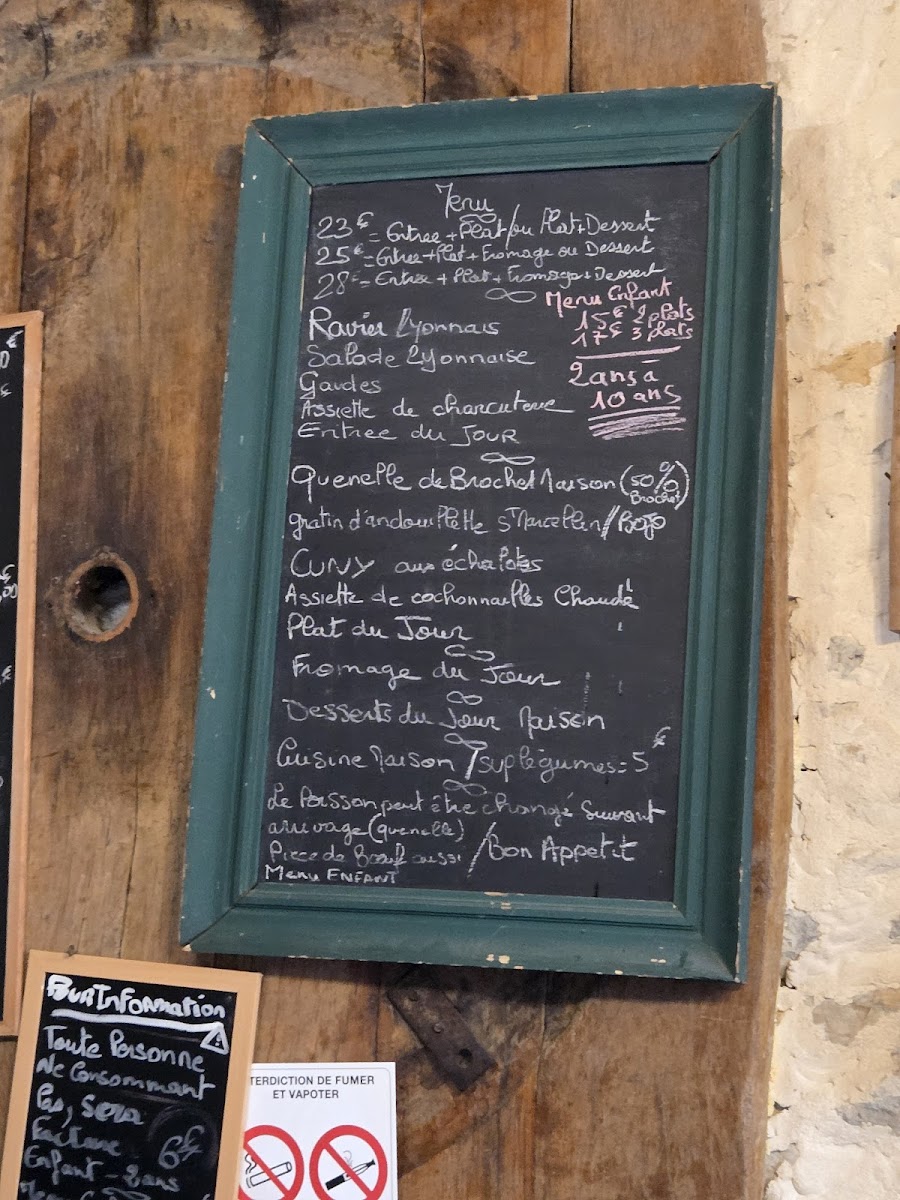 Menu
23€ = Entree + Plat / ou Plat + Dessert
25€ = Entree + Plat + Fromage ou Dessert
28€ = Entree + Plat + Fromage + Dessert
Menu Enfant
15€ 2 plats
17€ 3 plats
2 ans à
10 ans
Ravier Lyonnais
Salade Lyonnaise
Gaudes
Assiette de charcuterie
Entree du Jour
Quenelle de Brochet Maison (50% Brochet)
gratin d'andouillette St Marcellin / Bojo
CUNY aux échalotes
Assiette de cochonnailles Chaude
Plat du Jour
Fromage du Jour
Desserts du Jour Maison
Cuisine Maison / sup légumes = 5€
Le Poisson peut être changé Suivant
arrivage (quenelle)
Piece de Boeuf aussi / Bon Appetit
Menu ENFANT
Pour Information
Toute Personne
Ne Consommant
Pas, Sera
Facturé 6€
Enfant - 2 ans
INTERDICTION DE FUMER
ET VAPOTER